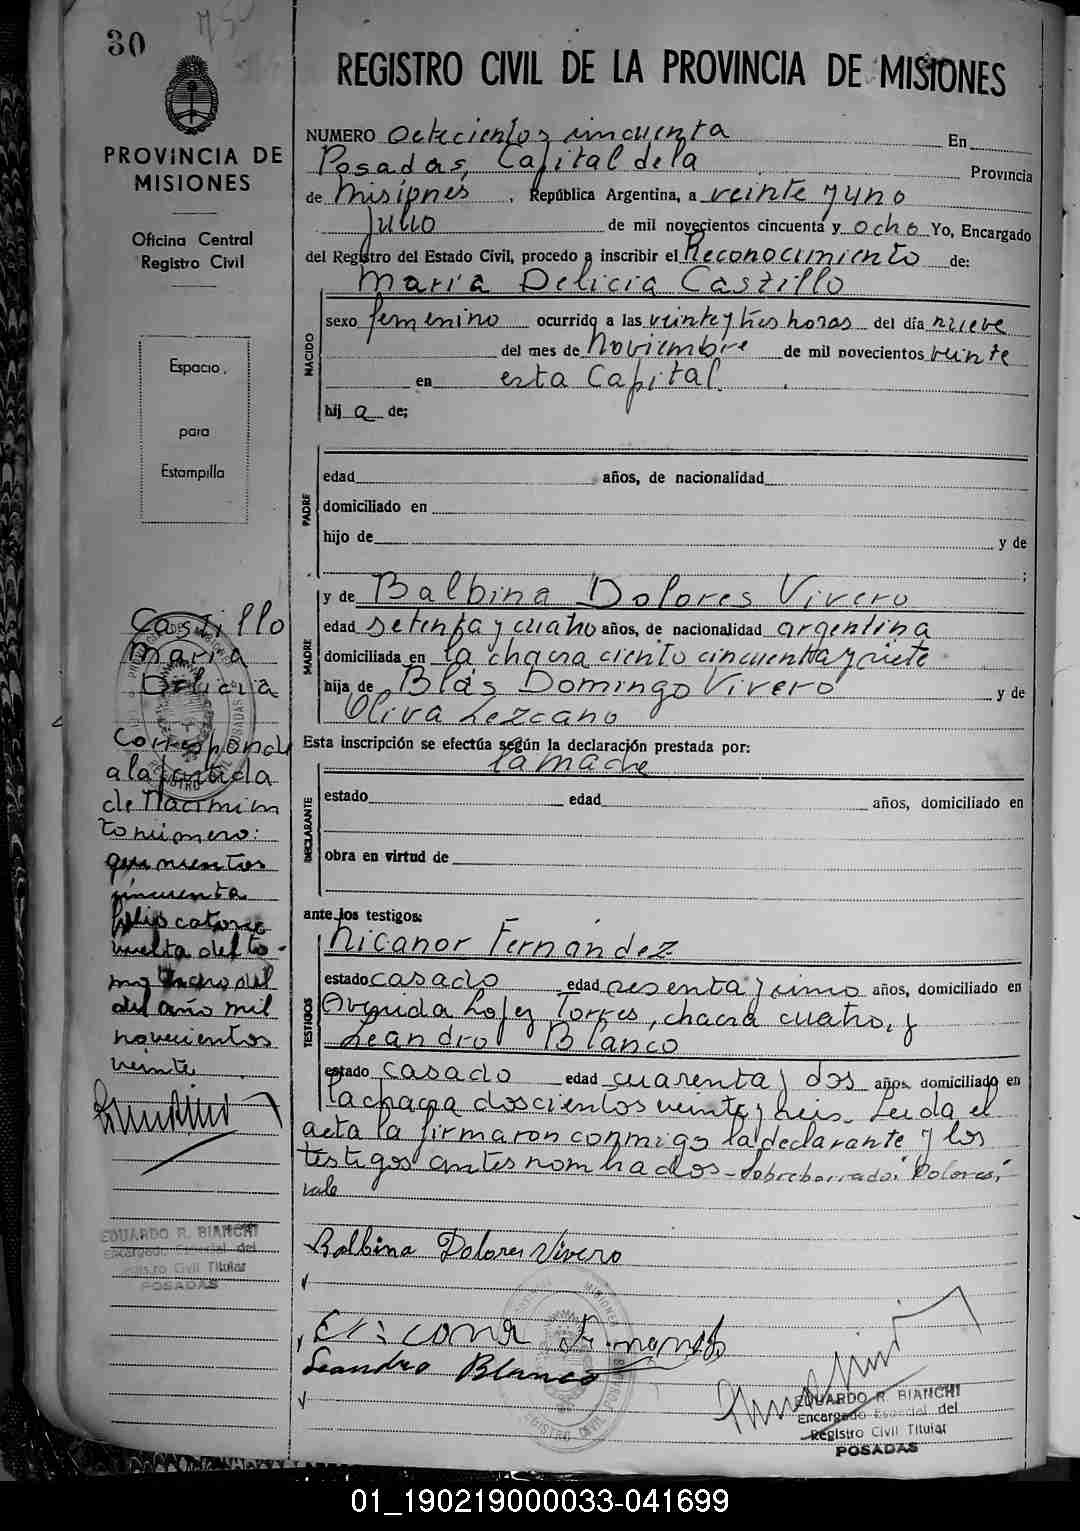 30
750
PROVINCIA DE
MISIONES
Oficina Central
Registro Civil
Espacio
para
Estampilla
Castillo
Maria
Delicia
Corresponde
a la partida
de Nacimien
to número:
quinientos
cincuenta
folio catorce
vuelta del to-
mo del
del año mil
novecientos
veinte
EDUARDO R. BIANCHI
Encargado Especial del
Registro Civil Titular
POSADAS
REGISTRO CIVIL DE LA PROVINCIA DE MISIONES
NUMERO Octecientos cincuenta En
Posadas, Capital de la Provincia
de Misiones, República Argentina, a veinte y uno
Julio de mil novecientos cincuenta y ocho Yo, Encargado
del Registro del Estado Civil, procedo a inscribir el Reconocimiento de:
María Delicia Castillo
NACIDO
sexo femenino ocurrido a las veinte y tres horas del día nueve
del mes de Noviembre de mil novecientos veinte
en esta Capital.
hij a de;
PADRE
edad años, de nacionalidad
domiciliado en
hijo de y de
;
y de Balbina Dolores Vivero
MADRE
edad setenta y cuatro años, de nacionalidad argentina
domiciliada en la chacra ciento cincuenta y siete
hija de Blás Domingo Vivero y de
Oliva Lezcano
Esta inscripción se efectúa según la declaración prestada por:
la madre
DECLARANTE
estado edad años, domiciliado en
obra en virtud de
ante los testigos:
Nicanor Fernández
TESTIGOS
estado casado edad sesenta y uno años, domiciliado en
Avenida Lopez Torres, chacra cuatro, y
Leandro Blanco
estado casado edad cuarenta y dos años, domiciliado en
la chacra doscientos veinte y seis. Leida el
acta la firmaron conmigo la declarante y los
testigos antes nombrados - Sobreborrado: "Dolores"
vale
Balbina Dolores Vivero
Nicanor Fernandez
Leandro Blanco
EDUARDO R. BIANCHI
Encargado Especial del
Registro Civil Titular
POSADAS
01_190219000033-041699